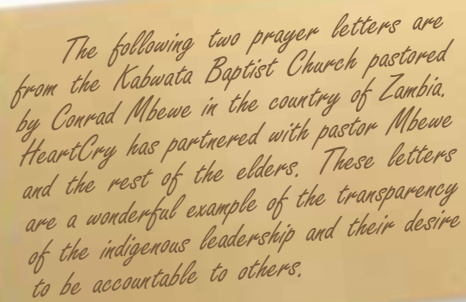 The following two prayer letters are
from the Kabwata Baptist Church pastored
by Conrad Mbewe in the country of Zambia.
HeartCry has partnered with pastor Mbewe
and the rest of the elders. These letters
are a wonderful example of the transparency
of the indigenous leadership and their desire
to be accountable to others.